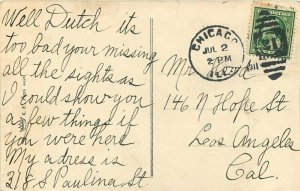 Well Dutch its
too bad your missing
all the sights as
I could show you
a few things if
you were here
My adress is
318 S Paulina St
CHICAGO
JUL 2
2 PM
ILL.
Mr
146 N Hope St
Los Angeles
Cal.